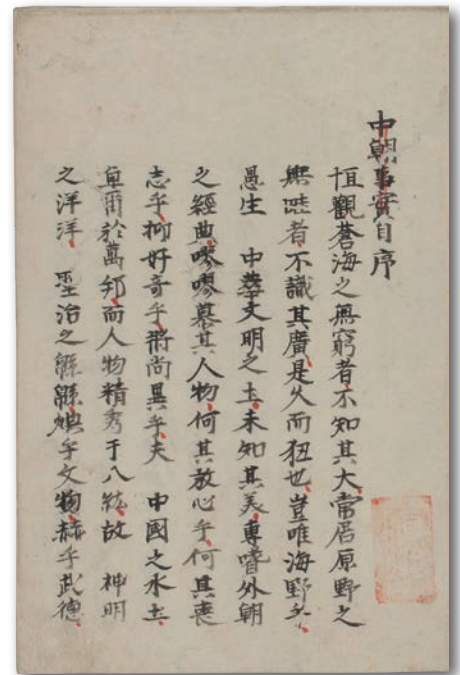 中朝事實自序
恒觀蒼海之無窮者不知其大常居原野之
無畦者不識其廣是久而狃也豈唯海野乎
愚生　中華文明之土未知其美專嗜外朝
之經典嘐嘐慕其人物何其放心乎何其喪
志乎抑好奇乎將尚異乎夫　中國之水土
卓爾於萬邦而人物精秀于八紘故　神明
之洋洋　聖治之緜緜煥乎文物赫乎武德